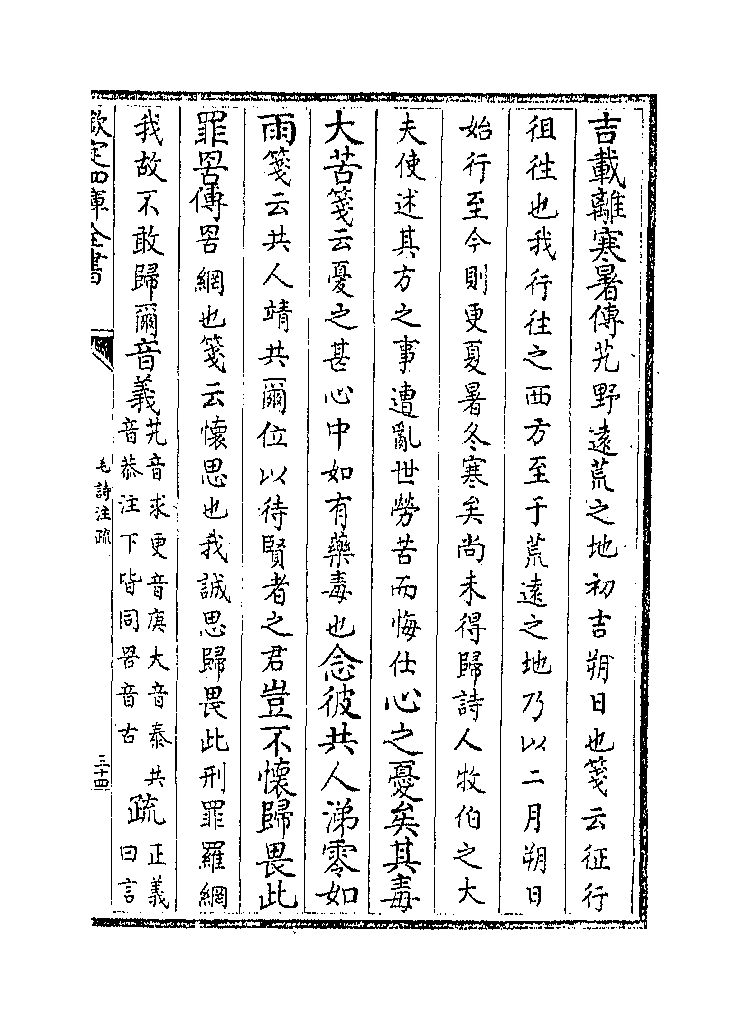 吉載離寒暑傳艽野逺荒之地初吉朔日也箋云征行
徂徃也我行徃之西方至于荒逺之地乃以二月朔日
始行至今則更夏暑冬寒矣尚未得歸詩人牧伯之大
夫使述其方之事遭亂世勞苦而悔仕心之憂矣其毒
大苦箋云憂之甚心中如有藥毒也念彼共人涕零如
雨箋云共人靖共爾位以待賢者之君豈不懷歸畏此
罪罟傳罟網也箋云懷思也我誠思歸畏此刑罪羅網
我故不敢歸爾音義艽音求更音庚大音泰共
音恭注下皆同罟音古
疏正義
曰言
欽定四庫全書
毛詩注疏
三十四